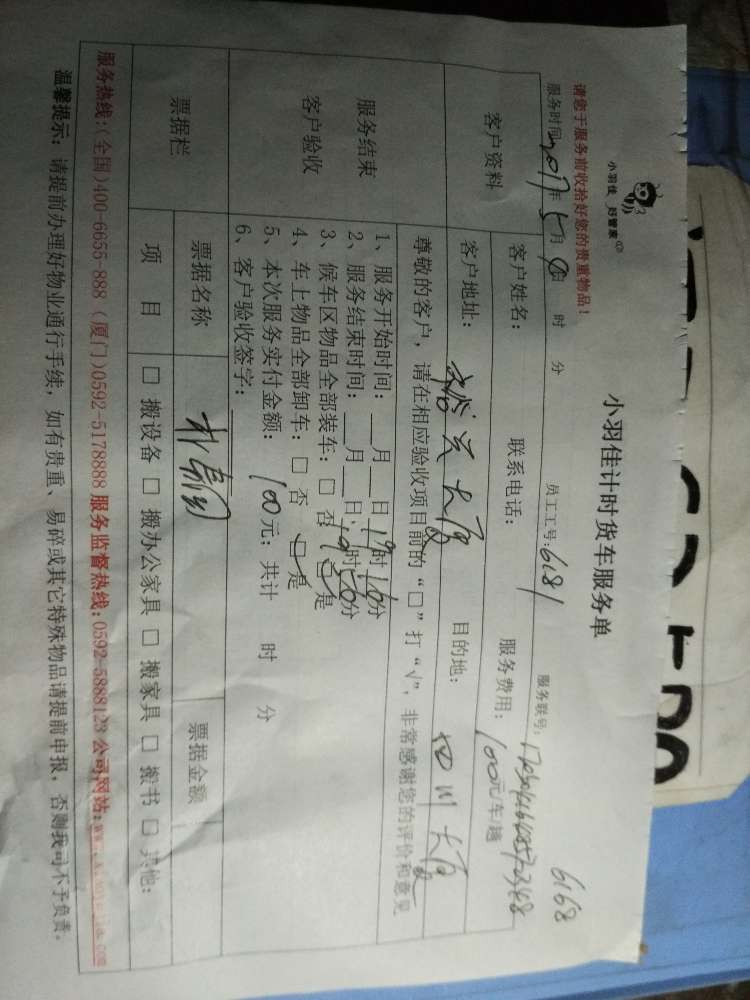 小羽佳 好管家
小羽佳计时货车服务单
6168
请您于服务前收拾好您的贵重物品！
服务时间：2017年5月 日 时 分 员工工号：6181 服务联号：
客户资料
客户姓名： 联系电话： 服务费用：100元/车/趟
客户地址：裕兴大厦 目的地：四川大厦
服务结束
客户验收
尊敬的客户，请在相应验收项目前的“□”打“√”，非常感谢您的评价和意见
1、服务开始时间：___月___日19时10分
2、服务结束时间：___月___日19时50分
3、候车区物品全部装车：□ 否 □ 是
4、车上物品全部卸车：□ 否 □ 是
5、本次服务实付金额：100元；共计 时 分
6、客户验收签字：
票据栏
票据名称 票据金额
项 目 □ 搬设备 □ 搬办公家具 □ 搬家具 □ 搬书 □ 其他：
服务热线：(全国)400-6655-888 (厦门)0592-5178888 服务监督热线：0592-5888123 公司网站：www.xiaoyujia.com
温馨提示：请提前办理好物业通行手续，如有贵重、易碎或其它特殊物品请提前申报，否则我司不予负责。